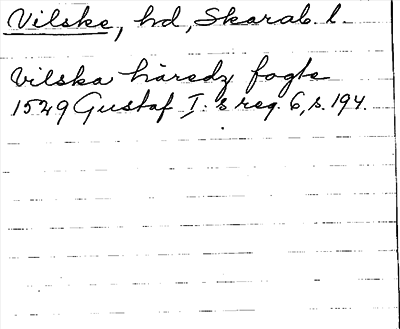 Vilske, hd, Skarab. l.
vilska häredz fogte
1529 Gustaf I:s reg. 6, s. 194.